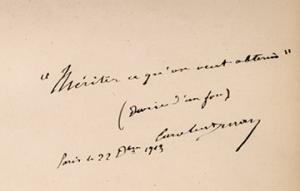 "Mériter ce qu'on veut obtenir"
(Devise d'un fou)
Paris le 22 1913